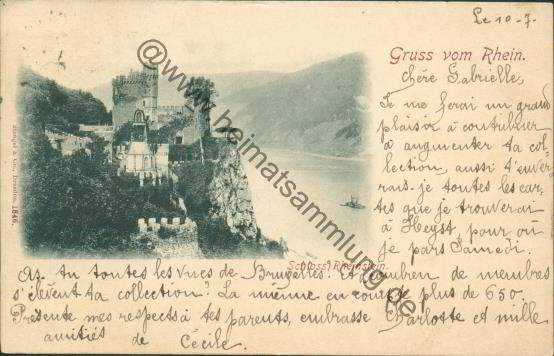 Le 10-7.
Gruss vom Rhein.
Chère Gabrielle,
Je me ferai un grand
plaisir à contribuer
à augmenter ta col
lection, aussi t'enver
rais-je toutes les car
tes que je trouverai
à Heyst, pour où
je pars Samedi.
Schloss Rheinstein.
As-tu toutes les vues de Bruxelles? Et combien de membres
s'élèvent ta collection? La mienne en compte plus de 650.
Présente mes respects à tes parents, embrasse Charlotte et mille
amitiés de Cécile.
Stengel & Co., Dresden. 1846.
www.heimatsammlung.de